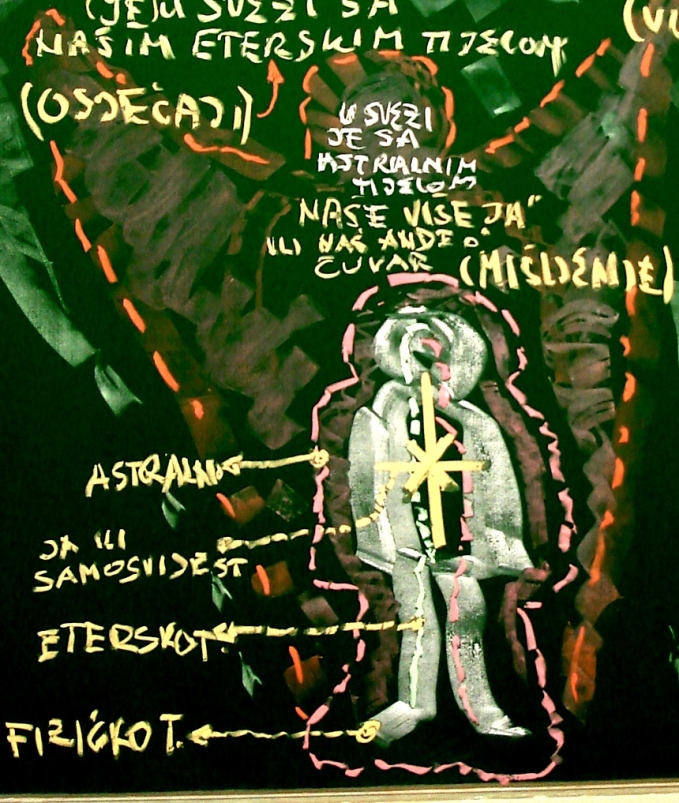 (JEJU SVEZI SA
NAŠIM ETERSKIM TIJELOM
(OSJEĆAJI)
U SVEZI
JE SA
ASTRALNIM
TIJELOM
"NAŠE VIŠE JA"
ILI NAŠ ANĐEO
ČUVAR
(MIŠLJENJE)
ASTRALNO
JA ILI
SAMOSVIJEST
ETERSKO T.
FIZIČKO T.